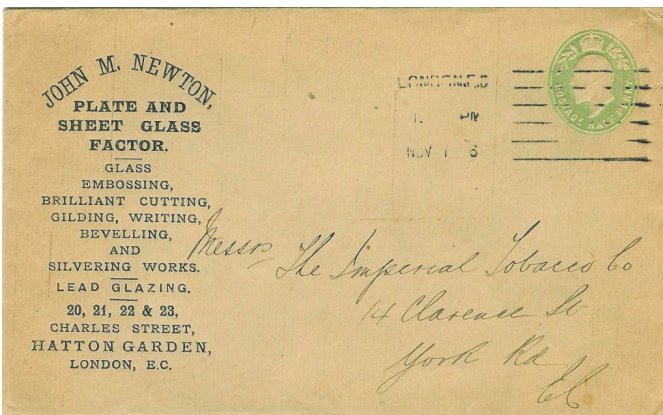 JOHN M. NEWTON,
PLATE AND
SHEET GLASS
FACTOR.
GLASS
EMBOSSING,
BRILLIANT CUTTING,
GILDING, WRITING,
BEVELLING,
AND
SILVERING WORKS.
LEAD GLAZING.
20, 21, 22 & 23,
CHARLES STREET,
HATTON GARDEN,
LONDON, E.C.
LONDON E.C
PM
NOV 1
POSTAGE HALF PENNY
Messrs The Imperial Tobacco Co
14 Clarence St
York Rd
EC